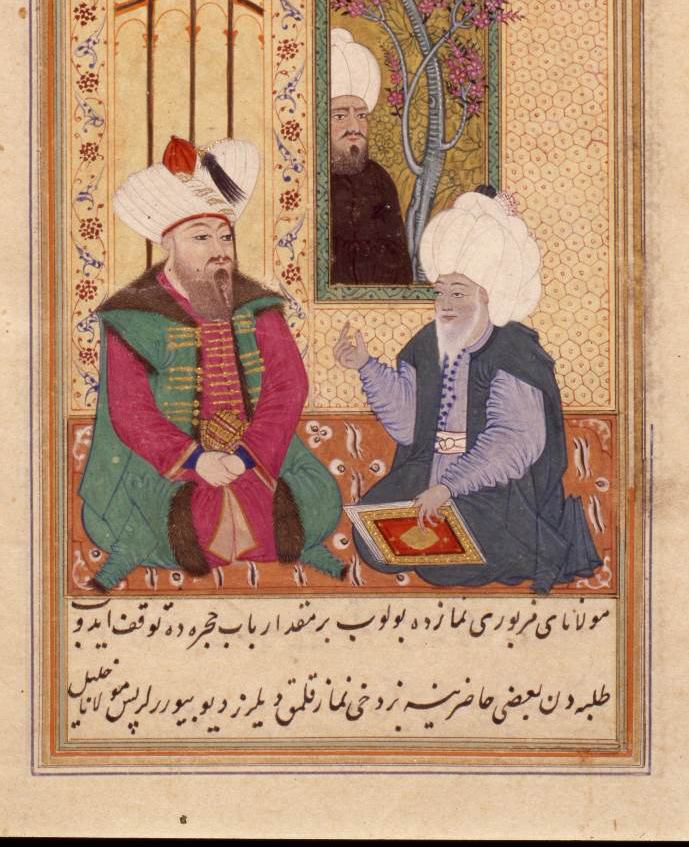 مولانای مزبوری نمازده بولوب بر مقدار باب حجره ده توقف ایدوب
طلبه دن بعضی حاضرینه بز دخی نماز قلمق دیلرز دیو بیوررلر پس مولانا خلیل